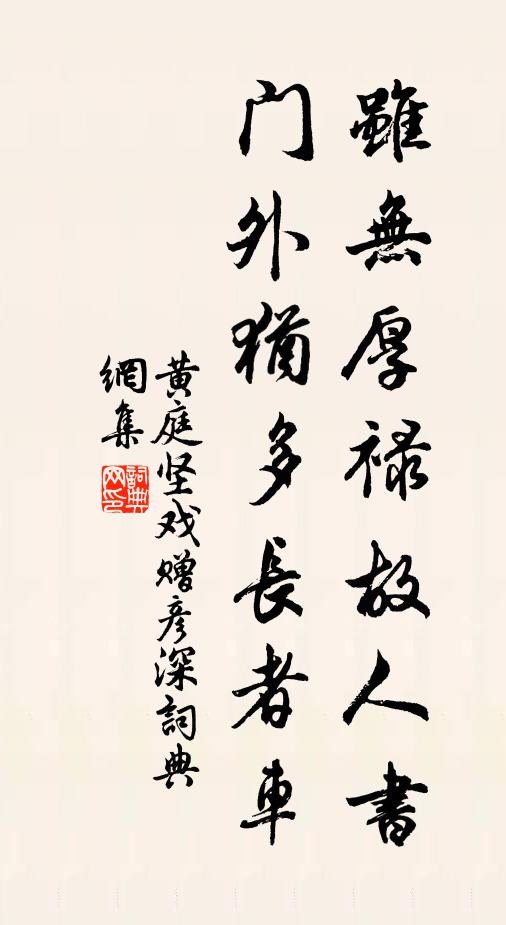 雖無厚禄故人書
門外猶多長者車
黄庭坚戏赠彦深詞典
網集
詞典
网印